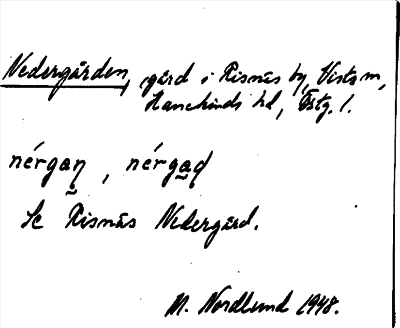 Nedergården, gård i Risnäs by, Vists sn,
Hanekinds hd, Östg. l.
nérgaη̣, nérgad
Se Risnäs Nedergård.
M. Nordlund 1948.